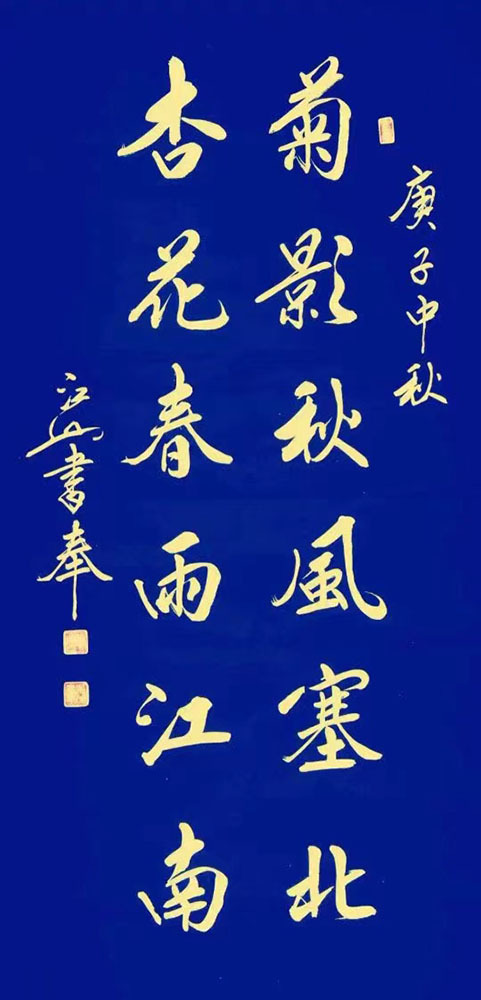 庚子中秋
菊影秋風塞北
杏花春雨江南
江山書奉